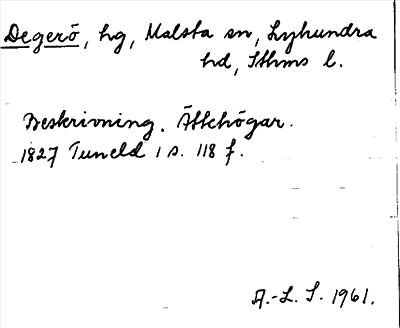 Degerö, hg, Malsta sn, Lyhundra
hd, Sthms l.
Beskrivning. Ättehögar.
1827 Tuneld 1 s. 118 f.
A.-L. S. 1961.